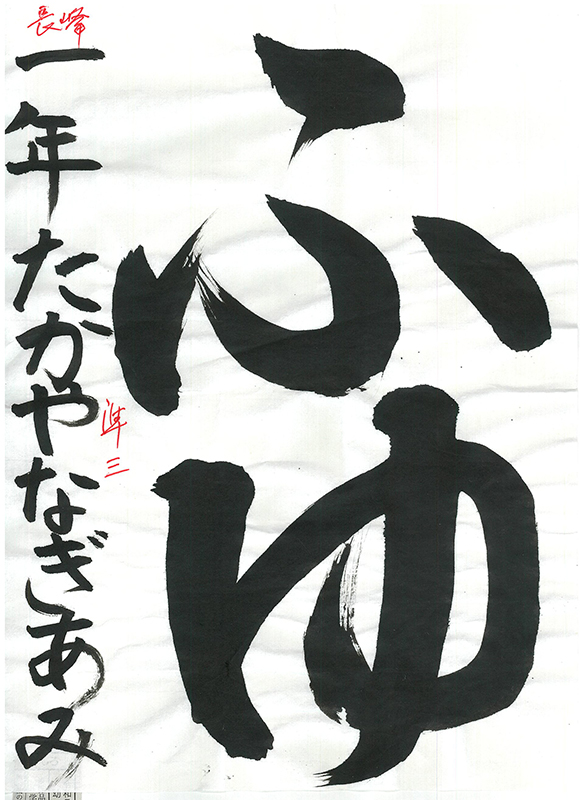 ふゆ
長峰
一年たかやなぎあみ
準三